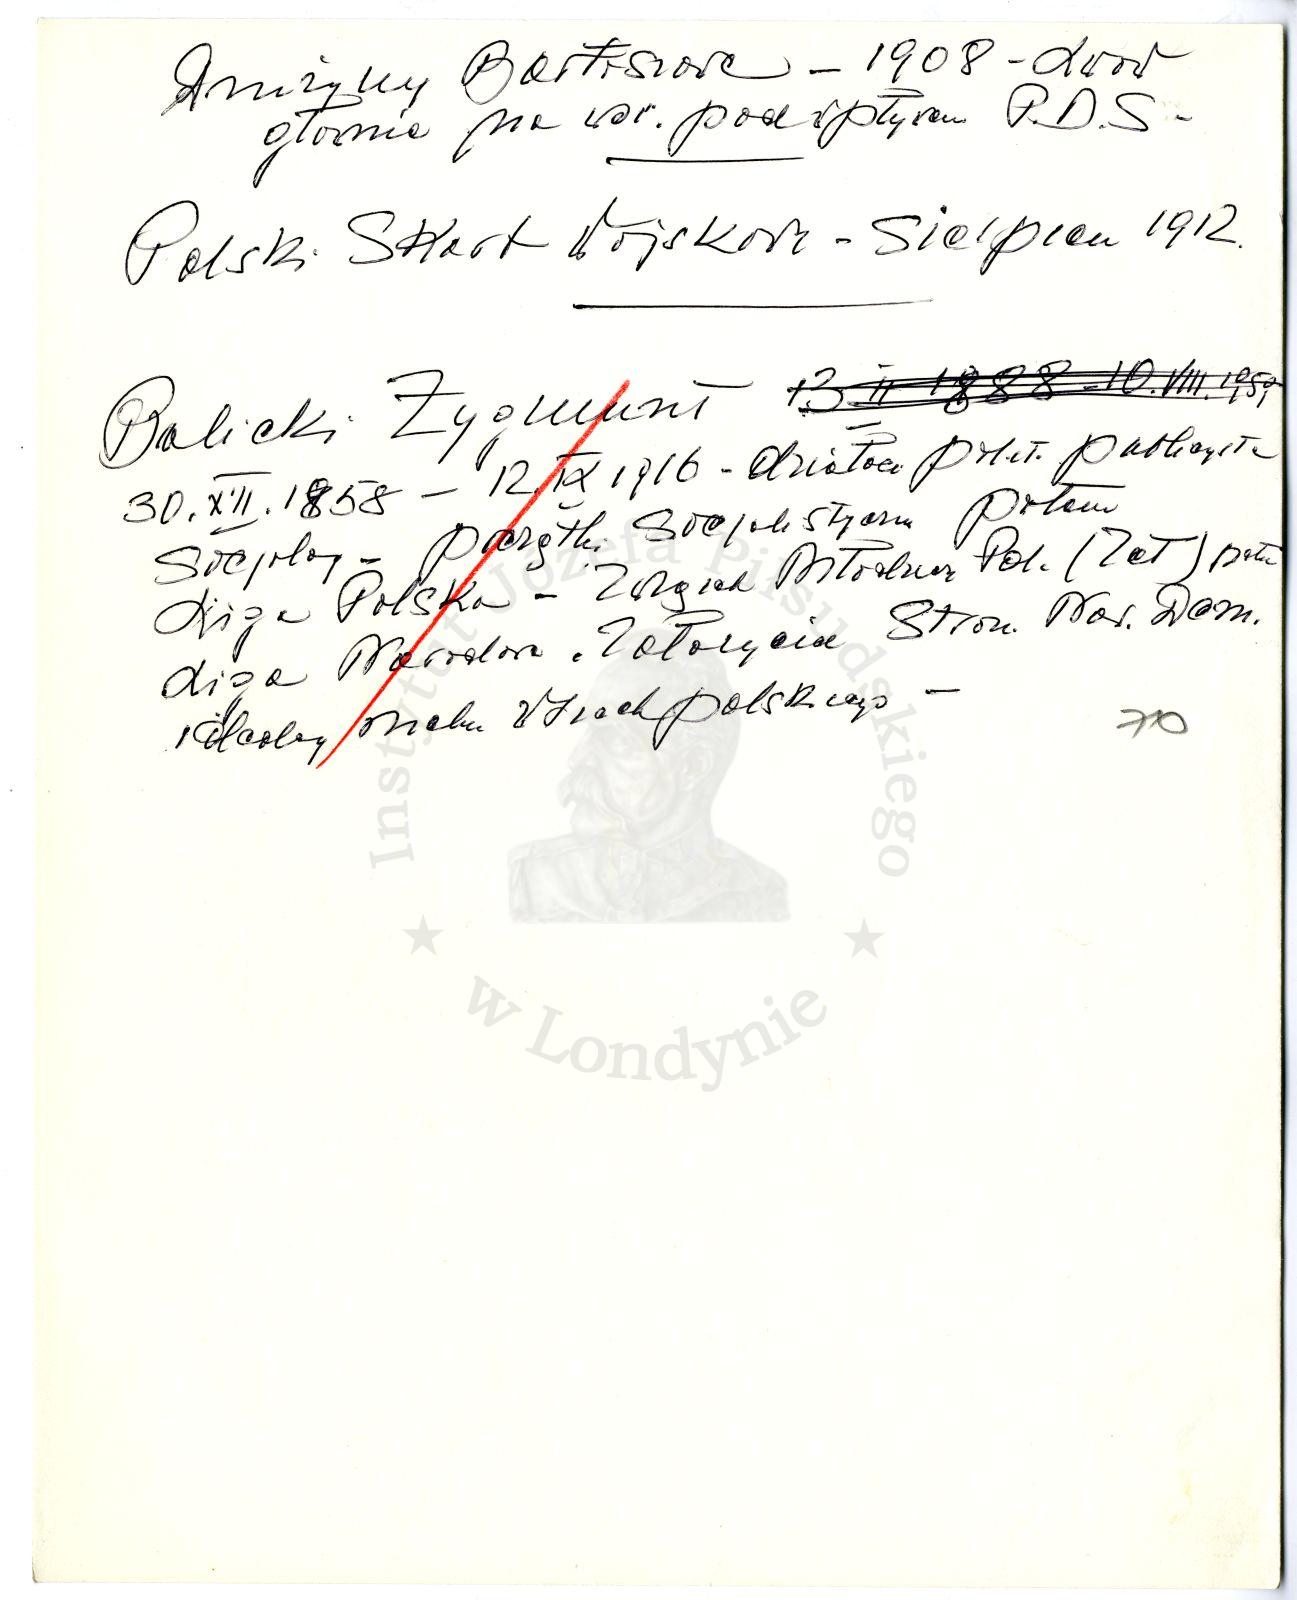 Drużyny Bartoszowe - 1908 - Lwów
głównie na wsi. pod wpływem P.D.S -
Polski Skarb Wojskowy - Sierpień 1912.
Balicki Zygmunt 13 II 1888 - 10.VIII.195
30.XII.1858 - 12.IX 1916 - działacz polit. publicysta
socjolog - początk. socjalistyczn potem
Liga Polska - Związek Młodzieży Pol. (Zet) potem
Liga Narodowa. Założyciel Stron. Nar. Dem.
ideolog ruchu wszechpolskiego -
710
Instytut Józefa Piłsudskiego
w Londynie